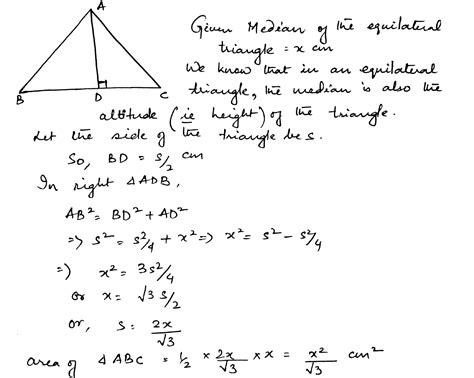 A
B
D
C
Given Median of the equilateral
triangle = x cm
We know that in an equilateral
triangle, the median is also the
altitude (ie height) of the triangle.
Let the side of the triangle be s.
So, BD = s/2 cm
In right △ADB,
AB² = BD² + AD²
=> s² = s²/4 + x² => x² = s² - s²/4
=> x² = 3s²/4
or x = √3 s/2
or, s = 2x/√3
area of △ABC = 1/2 × 2x/√3 × x = x²/√3 cm²